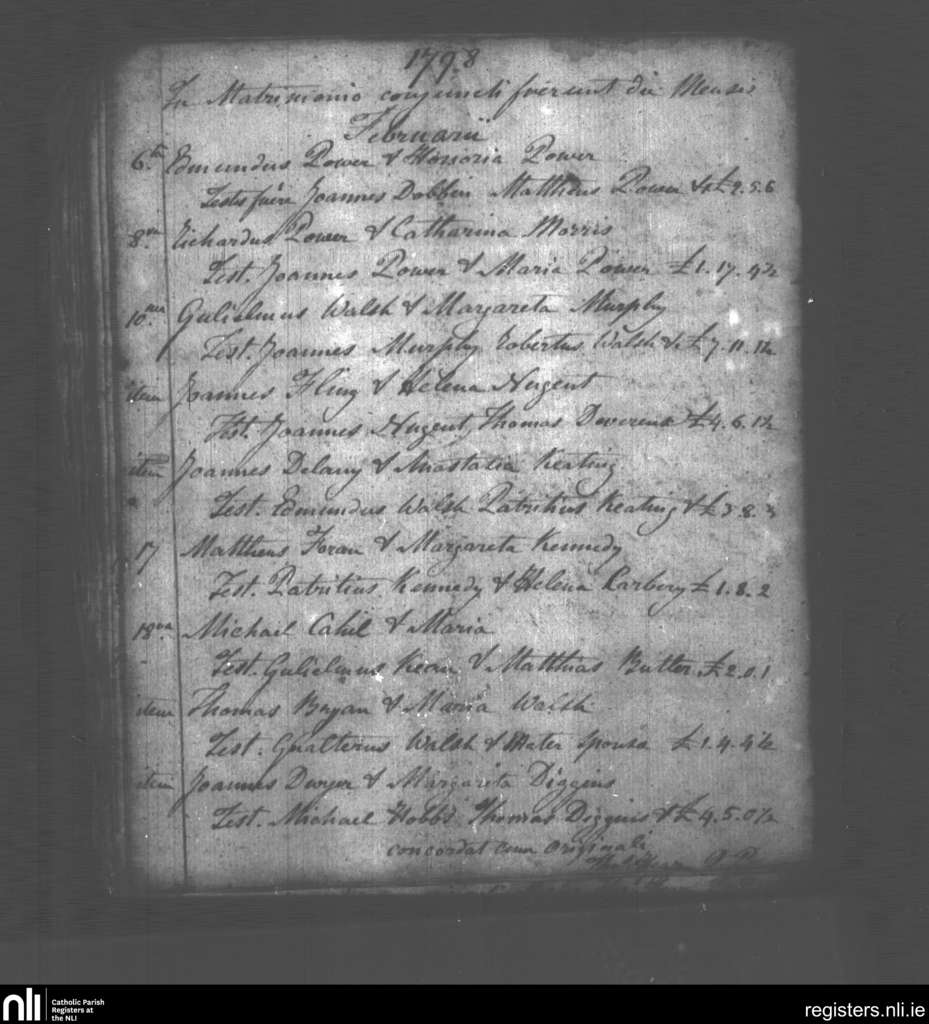 1798
In Matrimonio conjuncti fuerunt die Mensis
Februarii
6ta Edmundus Power & Honoria Power
Testes fuere Joannes Dobbin Matthius Power & £2.5.6
8va Richardus Power & Catharina Morris
Test. Joannes Power & Maria Power £1.17.4½
10ma Gulielmus Walsh & Margareta Murphy
Test. Joannes Murphy Robertus Walsh & £7.11.1½
item Joannes Fling & Helena Nugent
Test. Joannes Nugent, Thomas Devereux £4.6.1½
item Joannes Delany & Anastatia Keating
Test. Edmundus Walsh Patritius Keating & £3.8.
17 Mattheus Foran & Margareta Kennedy
Test. Patritius Kennedy & Helena Karbery £1.8.2
18va Michael Cahil & Maria
Test. Gulielmus & Matthias Butler £2.0.1
item Thomas Bryan & Maria Walsh
Test. Gualterus Walsh & Mater Sponsa £1.4.4½
item Joannes Dwyer & Margarita Diggins
Test. Michael Hobbs Thomas Diggins & £4.5.0½
concordat cum Originali
P. P.
nli
Catholic Parish
Registers at
the NLI
registers.nli.ie